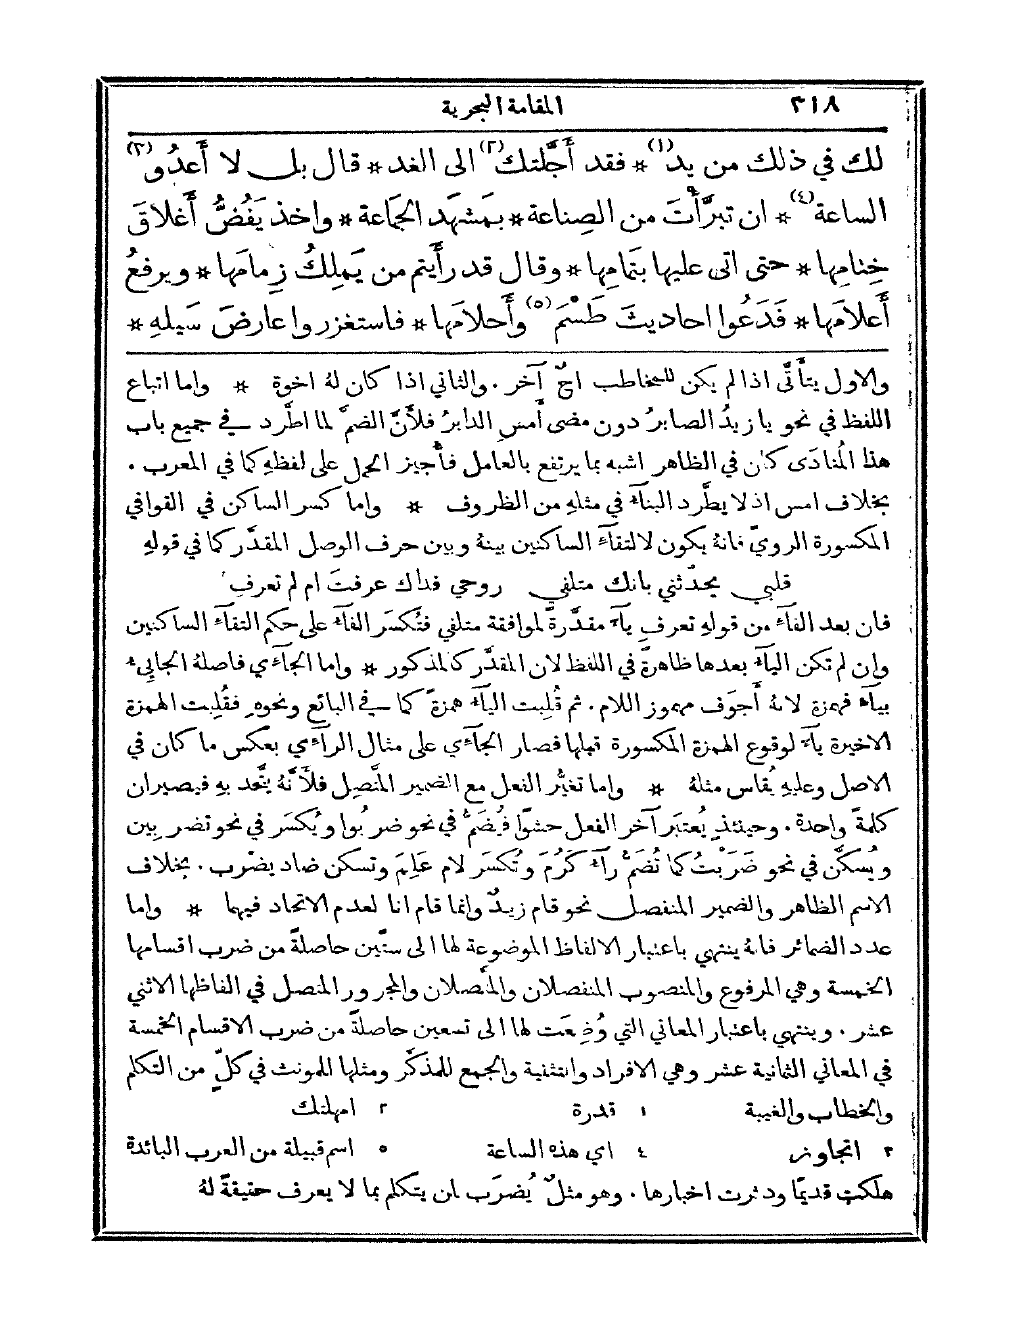 ٣١٨ المقامة البحرية
لك في ذلك من يدٍ(١)* فقد أَجَّلتك(٢) الى الغد* قال بلى لا أَعدُو(٣)
الساعة(٤)* ان تبرَّأْتَ من الصِناعة* بمَشهَد الجَماعة* واخذ يَفُضُّ أَغلاقَ
خِتامِها* حتى اتى عليها بتَمامِها* وقال قد رأَيتم من يَملِكُ زِمامَها* ويرفعُ
أَعلامَها* فَدَعُوا احاديثَ طَسْمَ(٥) وأَحلامَها* فاستغزروا عارضَ سَيلهِ*
والاول يتأَتَّى اذا لم يكن للمخاطب اخٌ آخر. والثاني اذا كان لهُ اخوة * واما اتباع
اللفظ في نحو يا زيدُ الصابرُ دون مضى أَمسِ الدابرُ فلأَنَّ الضمَّ لما اطَّرد في جميع باب
هذا المُنادَى كان في الظاهر اشبه بما يرتفع بالعامل فأُجيز الحمل على لفظهِ كما في المعرب.
بخلاف امس اذ لا يطَّرد البنآءُ في مثلهِ من الظروف * واما كسر الساكن في القوافي
المكسورة الرويّ فانهُ يكون لالتقآءِ الساكنين بينهُ وبين حرف الوصل المقدَّر كما في قولهِ
قلبي يحدّثني بانك متلفي روحي فداك عرفتَ ام لم تعرفِ
فان بعد الفآءِ من قولهِ تعرفِ يآءً مقدَّرةً لموافقة متلفي فتُكسَر الفآءُ على حكم التقآءِ الساكنين
وإن لم تكن اليآءُ بعدها ظاهرةً في اللفظ لان المقدَّر كالمذكور * واما الجآءِي فاصلهُ الجايِئُ
بيآءٍ فهمزةٍ لانهُ أَجوَف مهموز اللام. ثم قُلِبت اليآءُ همزةً كما في البائع ونحوهِ فقُلِبت الهمزة
الاخيرة يآءً لوقوع الهمزة المكسورة قبلها فصار الجآءِي على مثال الرآءِي بعكس ما كان في
الاصل وعليهِ يُقاس مثلهُ * واما تغيُّر الفعل مع الضمير المتَّصِل فلأَنَّهُ يتَّحد بهِ فيصيران
كلمةً واحدة. وحينئذٍ يُعتبَر آخر الفعل حشوًا فيُضَمُّ في نحو ضربُوا ويُكسَر في نحو تضربِين
ويُسكَّن في نحو ضَرَبْتُ كما تُضَمُّ رآءُ كَرُمَ وتُكسَر لام عَلِمَ وتسكن ضاد يضْرب. بخلاف
الاسم الظاهر والضمير المنفصل نحو قام زيدٌ وانما قام انا لعدم الاتحاد فيهما * واما
عدد الضمائر فانهُ ينتهي باعتبار الالفاظ الموضوعة لها الى ستّين حاصلةً من ضرب اقسامها
الخمسة وهي المرفوع والمنصوب المنفصلان والمتَّصلان والمجرور المتصل في الفاظها الاثني
عشر. وينتهي باعتبار المعاني التي وُضِعَت لها الى تسعين حاصلةً من ضرب الاقسام الخمسة
في المعاني الثمانية عشر وهي الافراد والتثنية والجمع للمذكَّر ومثلها للمونث في كلٍّ من التكلم
والخطاب والغيبة ١ قدرة ٢ امهلتك
٣ اتجاوز ٤ اي هذه الساعة ٥ اسم قبيلة من العرب البائدة
هلكت قديمًا ودثرت اخبارها. وهو مثلٌ يُضرَب لمن يتكلم بما لا يعرف حقيقةً لهُ